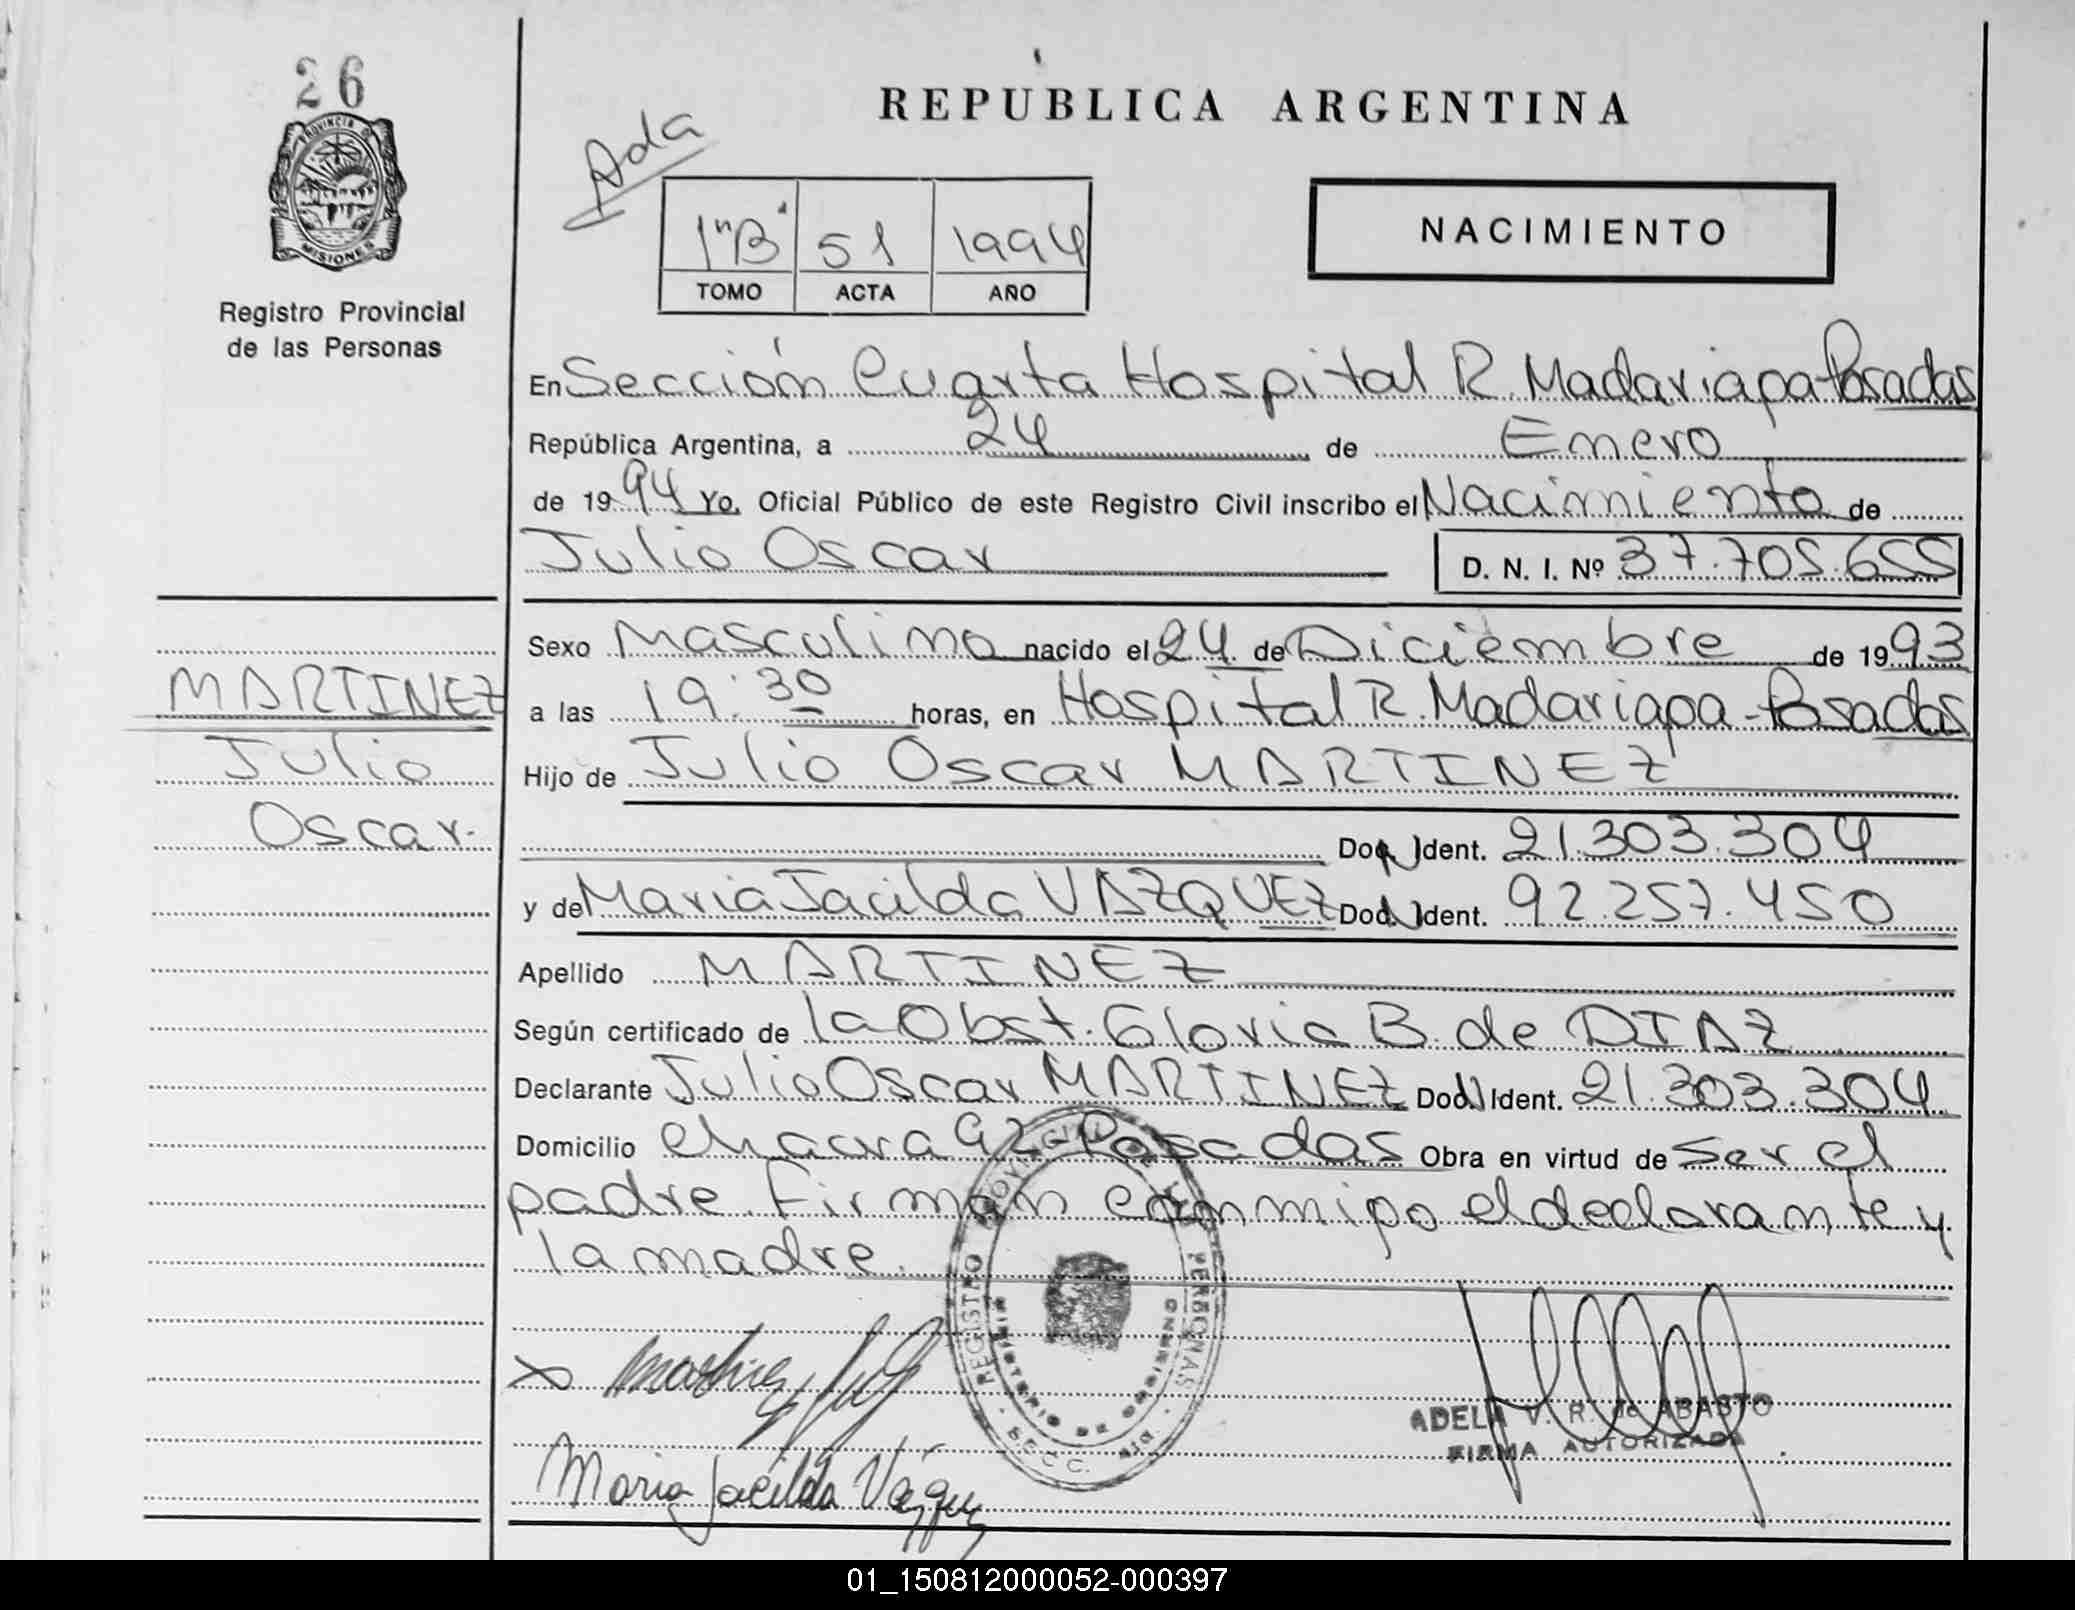 26
PROVINCIA DE
MISIONES
Registro Provincial
de las Personas
Ada
REPUBLICA ARGENTINA
1"B" 51 1994
TOMO ACTA AÑO
NACIMIENTO
En Sección Cuarta Hospital R. Madariaga-Posadas
República Argentina, a 24 de Enero
de 1994 Yo, Oficial Público de este Registro Civil inscribo el Nacimiento de
Julio Oscar D. N. I. Nº 37.705.655
Sexo Masculino nacido el 24 de Diciembre de 1993
MARTINEZ
Julio
Oscar.
a las 19:30 horas, en Hospital R. Madariaga-Posadas
Hijo de Julio Oscar MARTINEZ
Doc. N Ident. 21.303.304
y de Maria Jacilda VAZQUEZ Doc. N Ident. 92.257.450
Apellido MARTINEZ
Según certificado de la Obst. Gloria B. de DIAZ
Declarante Julio Oscar MARTINEZ Doc. N Ident. 21.303.304
Domicilio chacra 92-Posadas Obra en virtud de ser el
padre. Firman conmigo el declarante y
la madre.
REGISTRO PROVINCIAL DE LAS PERSONAS
MINISTERIO DE GOBIERNO
SECC. 4ta
X Martinez
Maria Jacilda Vázquez
ADELA V. R. de ABASTO
FIRMA AUTORIZADA
01_150812000052-000397